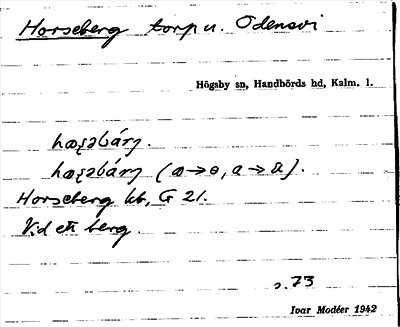 Horseberg torp u. Odensvi
Högsby sn, Handbörds hd, Kalm. l.
hœʂəbárj.
hœʂəbárj (œ→ɵ, a→
Horseberg kb, G 21.
Vid ett berg.
s. 73
Ivar Modéer 1942